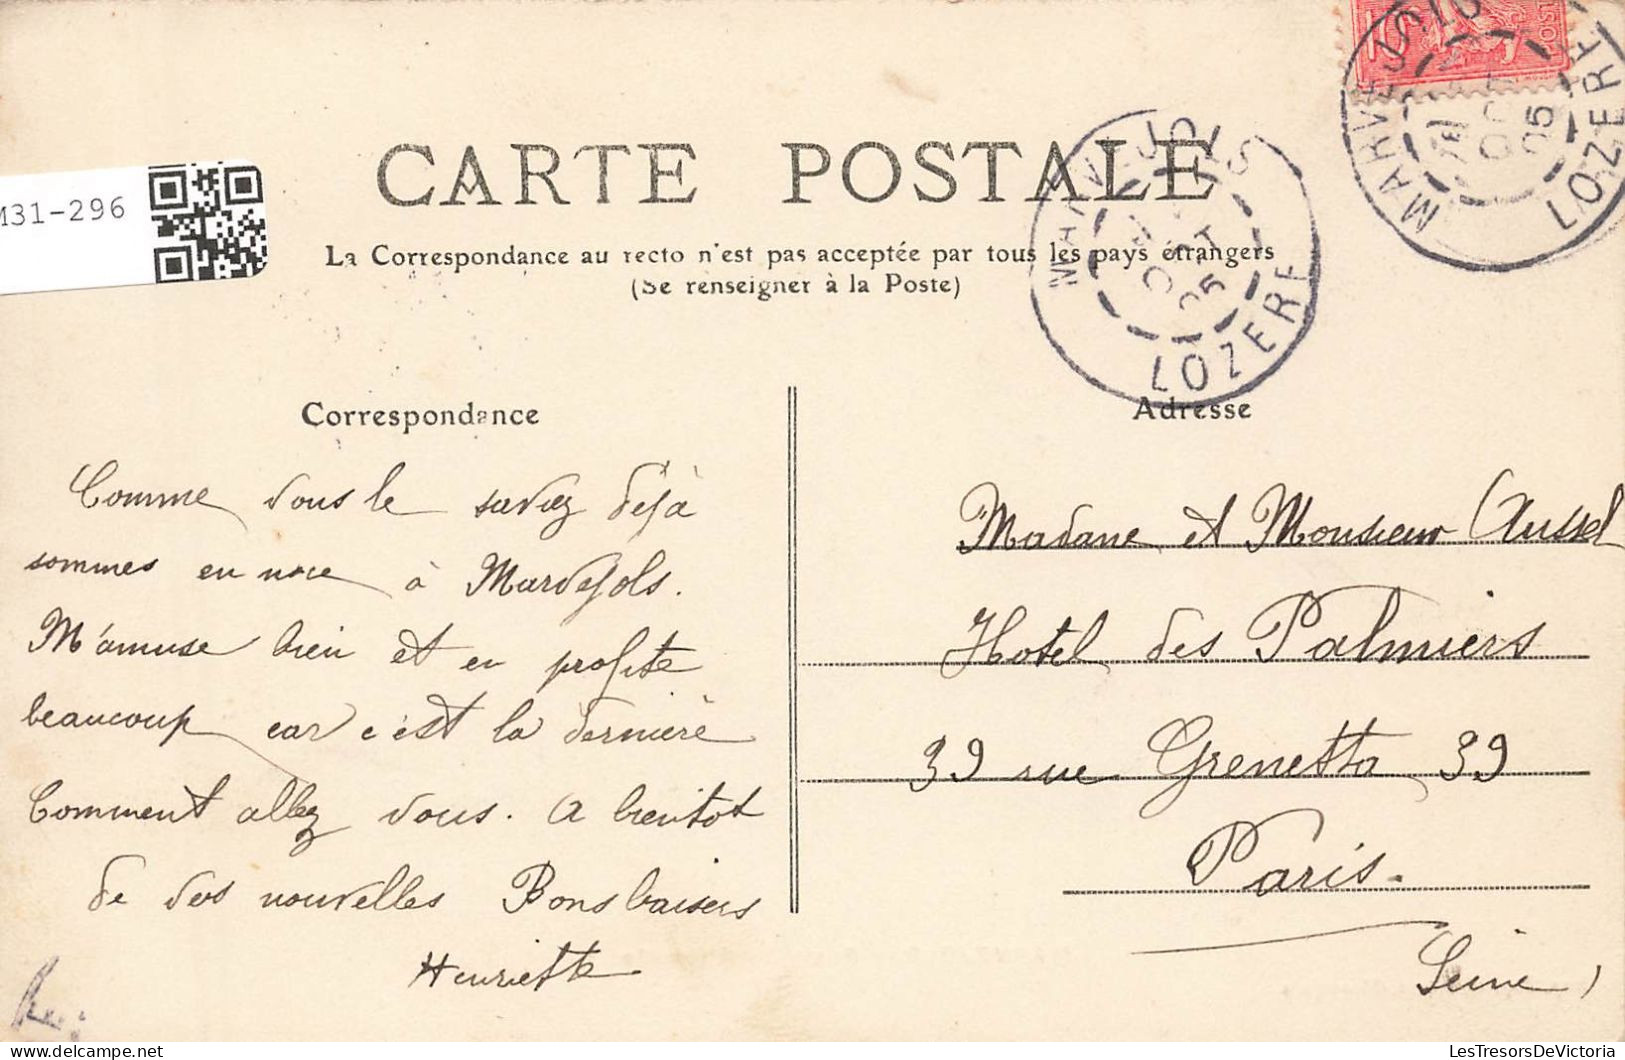 M31-296
CARTE POSTALE
La Correspondance au recto n'est pas acceptée par tous les pays étrangers
(Se renseigner à la Poste)
MARVEJOLS
OCT
05
LOZERE
MARVEJOLS
OCT
05
LOZERE
10
POST
Correspondance
Comme vous le savez déjà
sommes en noce à Marvejols.
M'amuse bien et en profite
beaucoup car c'est la dernière
Comment allez vous. A bientot
de vos nouvelles Bons baisers
Henriette
Adresse
Madame et Monsieur Aussel
Hotel des Palmiers
39 rue Grenetta 39
Paris.
Seine)
LesTresorsDeVictoria